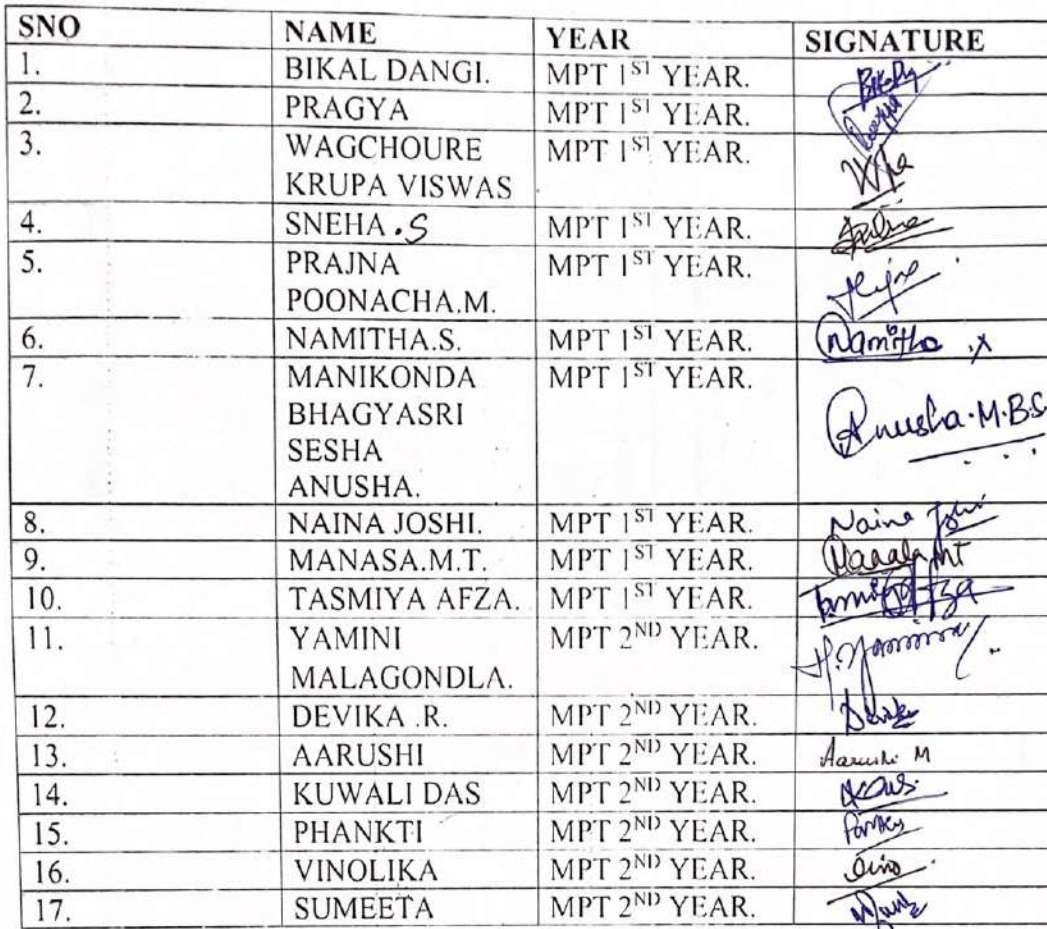 SNO NAME YEAR SIGNATURE
1. BIKAL DANGI. MPT 1ST YEAR.
2. PRAGYA MPT 1ST YEAR.
3. WAGCHOURE MPT 1ST YEAR.
KRUPA VISWAS
4. SNEHA .S MPT 1ST YEAR.
5. PRAJNA MPT 1ST YEAR.
POONACHA.M.
6. NAMITHA.S. MPT 1ST YEAR. Namitha
7. MANIKONDA MPT 1ST YEAR.
BHAGYASRI
SESHA
ANUSHA.
Anusha.M.B.S
8. NAINA JOSHI. MPT 1ST YEAR. Naina Joshi
9. MANASA.M.T. MPT 1ST YEAR.
10. TASMIYA AFZA. MPT 1ST YEAR.
11. YAMINI MPT 2ND YEAR.
MALAGONDLA.
12. DEVIKA .R. MPT 2ND YEAR. Devika
13. AARUSHI MPT 2ND YEAR. Aarushi M
14. KUWALI DAS MPT 2ND YEAR.
15. PHANKTI MPT 2ND YEAR.
16. VINOLIKA MPT 2ND YEAR.
17. SUMEETA MPT 2ND YEAR.